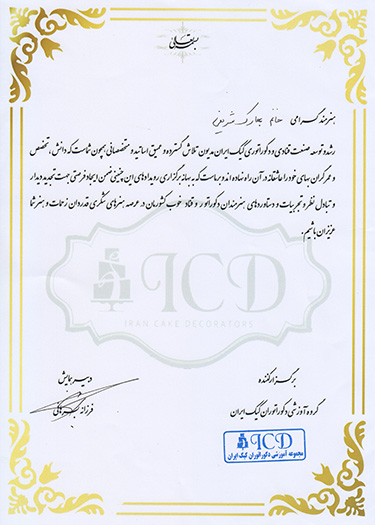 بسمه تعالی
هنرمند گرامی خانم
رشد و توسعه صنعت قنادی و دکوراتوری کیک ایران مدیون تلاش گسترده و عمیق اساتید و متخصصانی همچون شماست که دانش، تخصص
و عمر گران بهای خود را عاشقانه در آن راه نهاده اند و بر ماست که به بهانه برگزاری رویدادهای این چنینی ضمن ایجاد فرصتی جهت تجدید دیدار
و تبادل نظر و تجربیات و دستاوردهای هنرمندان دکوراتور و قناد خوب کشورمان در عرصه هنرهای شکری قدردان زحمات و هنر شما
عزیزان باشیم.
ICD
IRAN CAKE DECORATORS
برگزار کننده
گروه آموزشی دکوراتوران کیک ایران
دبیر همایش
فرزانه
ICD
مجموعه آموزشی دکوراتوران کیک ایران